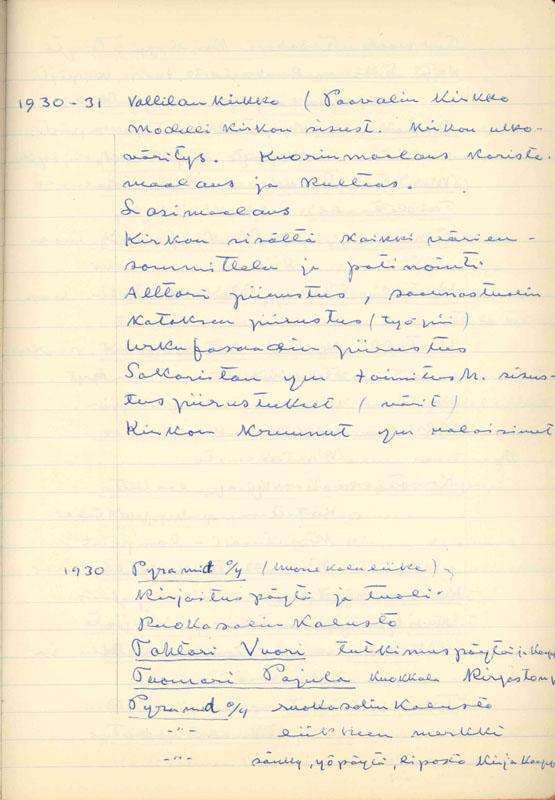 1930-31 Vallilan Kirkko ( Paavalin Kirkko
Modelli kirkon sisust. Kirkon ulko-
väritys. Kuorinmaalaus koriste.
maalaus ja kultaus.
Lasimaalaus
Kirkon sisältä kaikki värien-
sommittelu ja patinointi
Alttari piirustus, saarnastuolin
katoksen piirustus (työ pii)
Urkufasaadin piirustus
Sakaristan ym toimitus h. sisus-
tuspiirustukset ( värit )
Kirkon kruunut ym valaisimet
1930 Pyramid o/y (huonekaluliike)
Kirjoituspöytä ja tuoli.
Ruokasalin kalusto
Tohtori Vuori tutkimuspöytä ja kaappi
Tuomari Pajula Kuokkala Kirjaston
Pyramid o/y ruokasalin kalusto
-"- liikkeen merkki
-"- sänky, yöpöytä, lipasto kirja kaappi